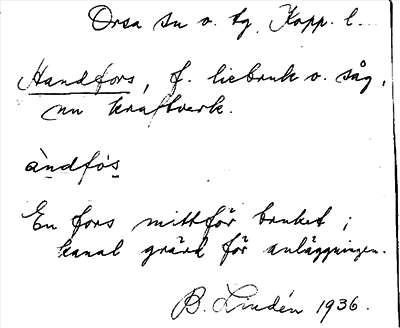 Orsa sn o. tg, Kopp. l.
Handfors, f. liebruk o. såg,
nu kraftverk.
àndfòs
En fors mittför bruket;
kanal grävd för anläggningen.
B. Lindén 1936.